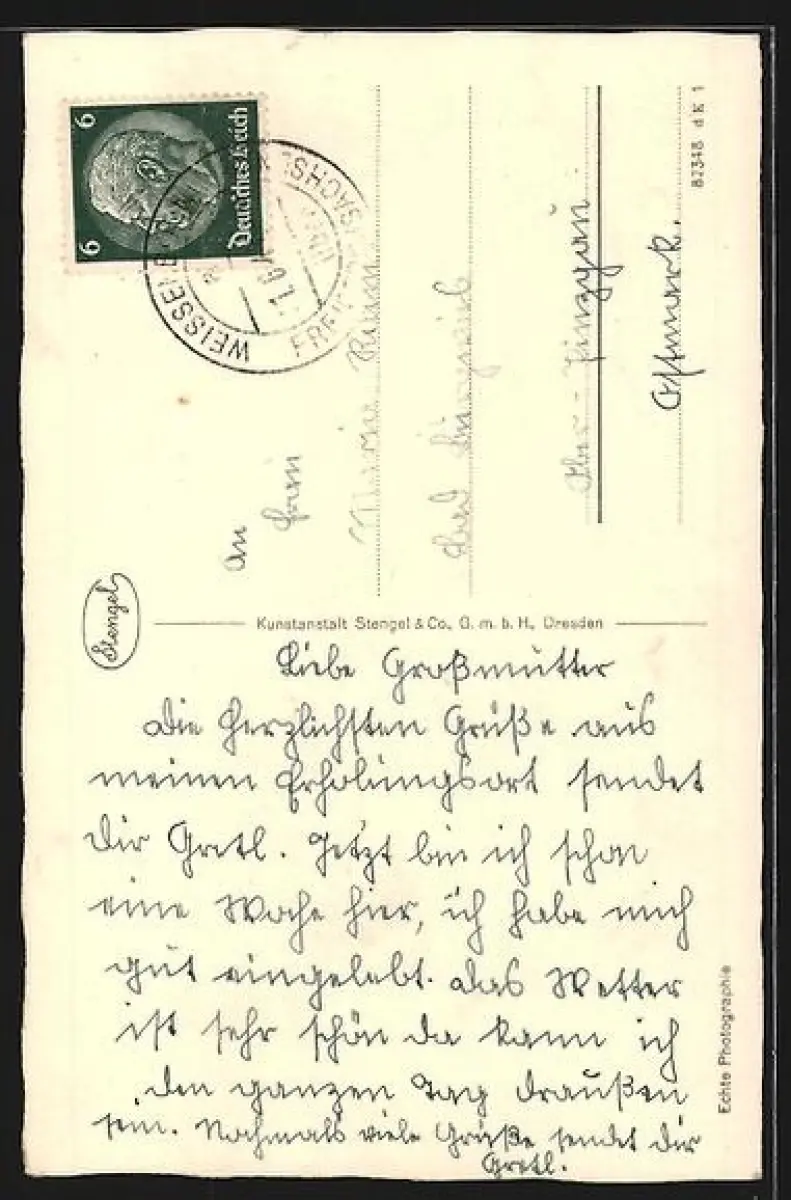 6
6
Deutsches Reich
WEISSENB
SACHS
An
Frau
Marie
Ober-Pinzgau
Ostmark.
82348 dK 1
Stengel
Kunstanstalt Stengel & Co., G. m. b. H., Dresden
Liebe Großmutter
Die herzlichsten Grüße aus
meinen Erholungsort sendet
Dir Gretl. Jetzt bin ich schon
eine Woche hier, ich habe mich
gut eingelebt. Das Wetter
ist sehr schön da kann ich
den ganzen Tag draußen
sein. Nochmals viele Grüße sendet Dir
Gretl.
Echte Photographie